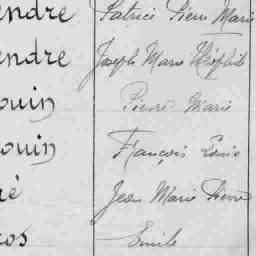 endre Patrice Pierre Marie
endre Joseph Marie Théophile
ouin Pierre Marie
ouin François Louis
é Jean Marie Pierre
os Emile